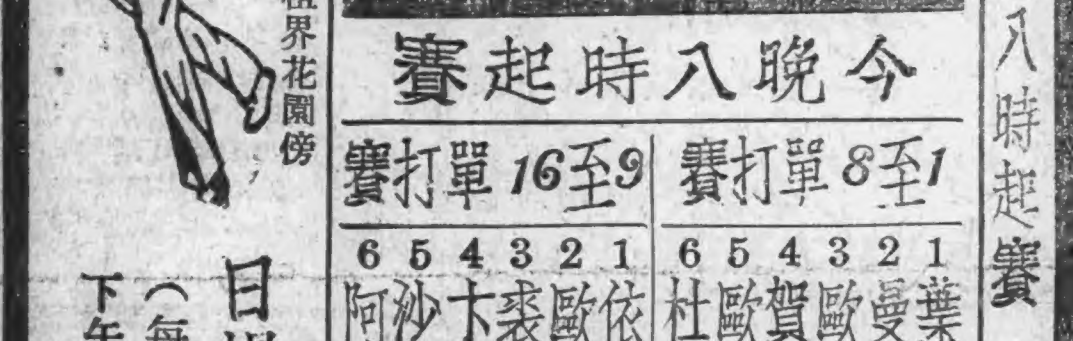 八時起賽
今晚八時起賽
1至8單打賽
1 2 3 4 5 6
葉 曼 歐 賀 歐 杜
9至16單打賽
1 2 3 4 5 6
依 歐 裘 卞 沙 阿
租界花園傍
日
（每
下午